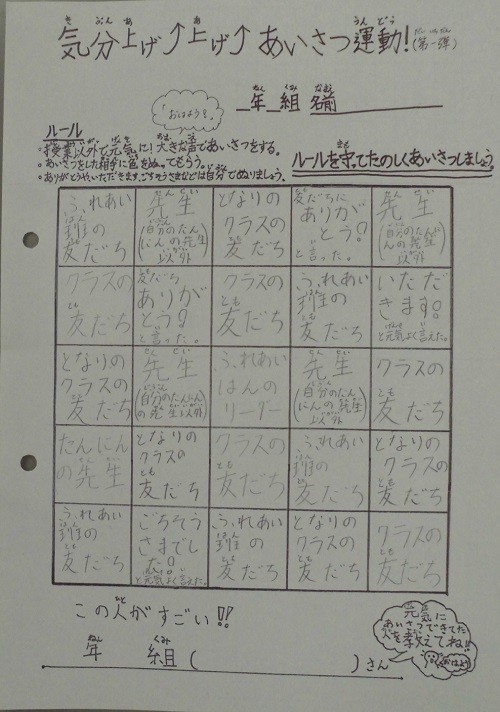 気分上げ↑上げ↑ あいさつ運動!(第一弾)
「おはよう!」
年 組 名前
ルール
・授業以外で元気に!大きな声であいさつをする。
・あいさつをした相手に色をぬってもらう。
・ありがとうや、いただきます、ごちそうさまなどは自分でぬりましょう。
ルールを守てたのしくあいさつしましょう。
ふれあい班の友だち
先生(自分のたんにんの先生以外)
となりのクラスの友だち
友だちにありがとう!と言った。
先生(自分のたんにんの先生以外)
クラスの友だち
友だちにありがとう!と言った。
クラスの友だち
ふれあい班の友だち
いただきます!と元気よく言えた。
となりのクラスの友だち
先生(自分のたんにんの先生以外)
ふれあいはんのリーダー
先生(自分のたんにんの先生以外)
クラスの友だち
たんにんの先生
となりのクラスの友だち
クラスの友だち
ふれあい班の友だち
となりのクラスの友だち
ふれあい班の友だち
ごちそうさまでした!と元気よく言えた。
ふれあい班の友だち
となりのクラスの友だち
クラスの友だち
この人がすごい!!
年 組( )さん
元気に
あいさつできてた
人を教えてね!!
おはよう